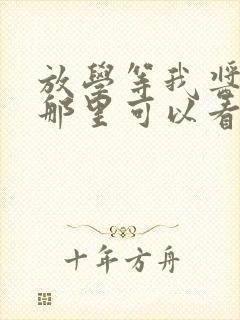 放學等我奬
那里可以看
十年方舟